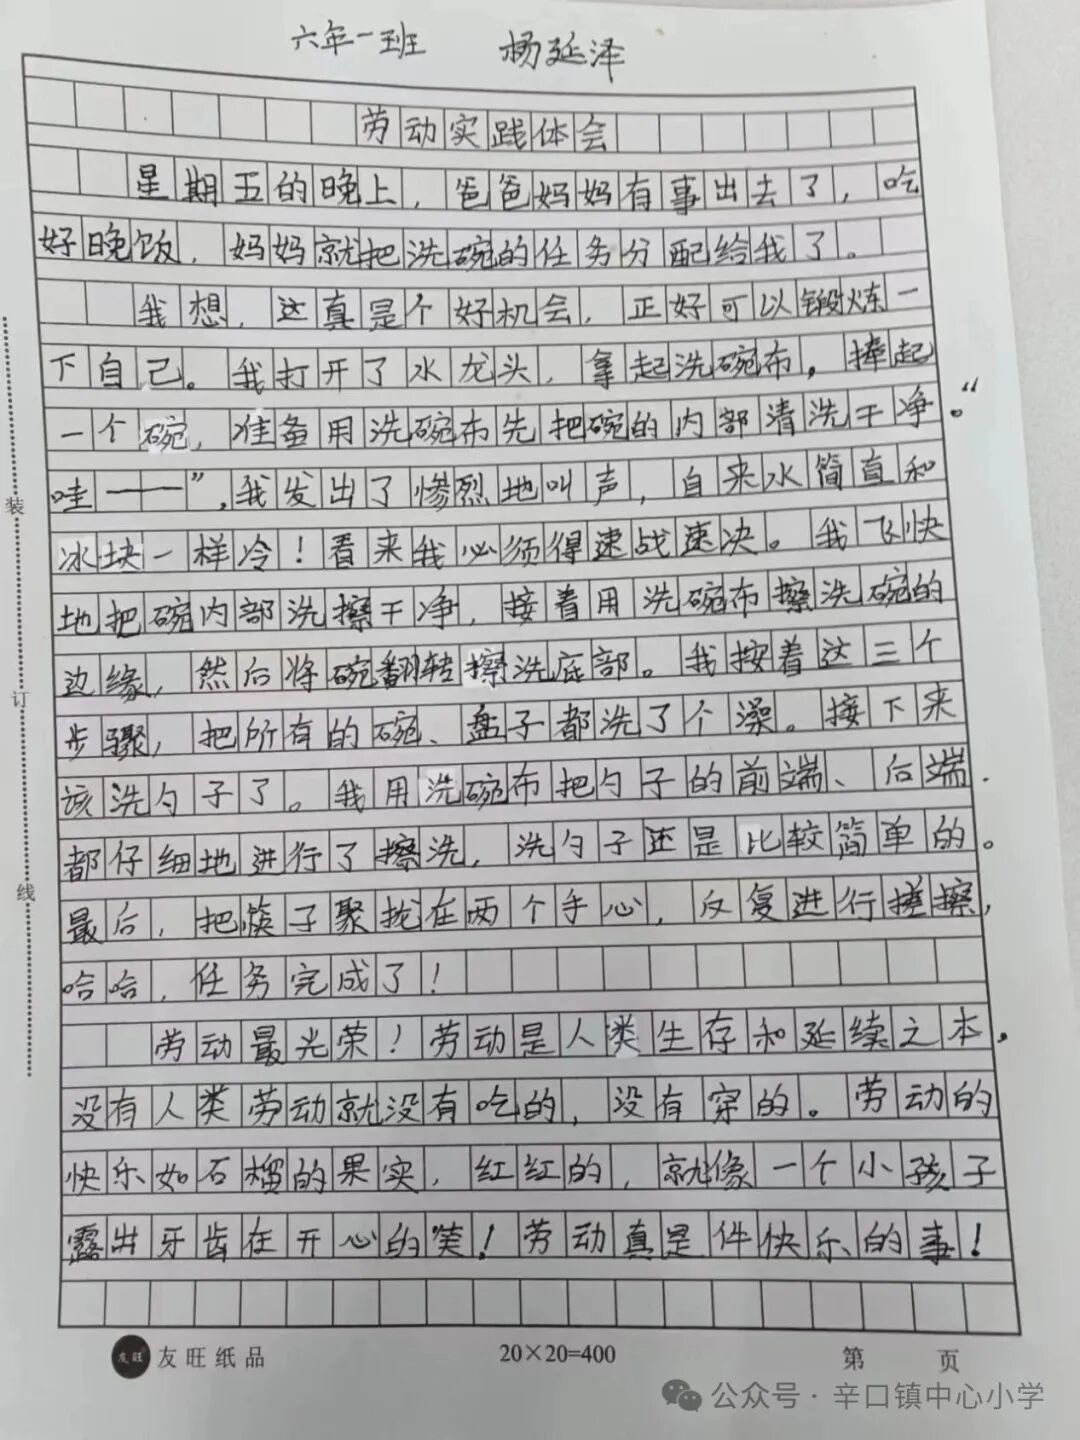 六年一班 杨延泽
劳动实践体会
星期五的晚上，爸爸妈妈有事出去了，吃
好晚饭，妈妈就把洗碗的任务分配给我了。
我想，这真是个好机会，正好可以锻炼一
下自己。我打开了水龙头，拿起洗碗布，捧起
一个碗，准备用洗碗布先把碗的内部清洗干净。“
哇——”，我发出了惨烈地叫声，自来水简直和
冰块一样冷！看来我必须得速战速决。我飞快
地把碗内部洗擦干净，接着用洗碗布擦洗碗的
边缘，然后将碗翻转擦洗底部。我按着这三个
步骤，把所有的碗、盘子都洗了个澡。接下来
该洗勺子了。我用洗碗布把勺子的前端、后端
都仔细地进行了擦洗，洗勺子还是比较简单的。
最后，把筷子聚拢在两个手心，反复进行搓擦，
哈哈，任务完成了！
劳动最光荣！劳动是人类生存和延续之本，
没有人类劳动就没有吃的，没有穿的。劳动的
快乐如石榴的果实，红红的，就像一个小孩子
露出牙齿在开心的笑！劳动真是件快乐的事！
装
订
线
友旺 友旺纸品 20×20=400 第 页
公众号·辛口镇中心小学